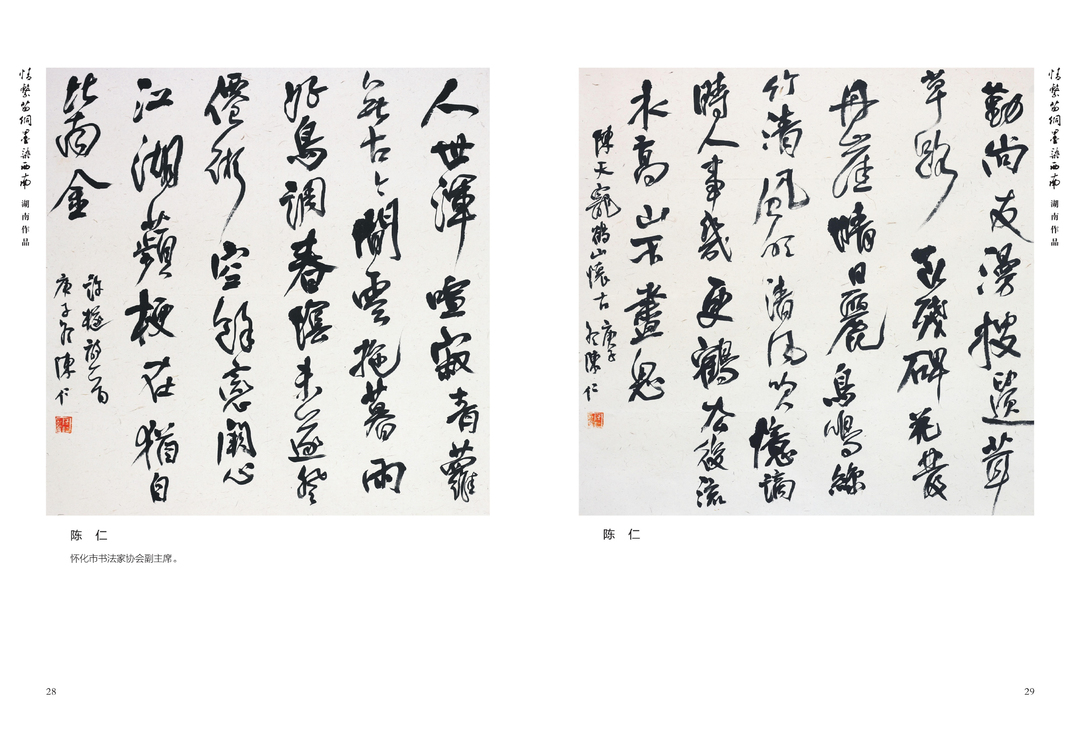 情繫墨染西南 湖南作品
人世渾喧寂青蘿
無古今閒雲拖暮雨
好鳥調春陰未遂登
僊術空餘戀闕心
江湖蘋梗在猶自
比南金
許詩一首
庚子冬陳仁
陈 仁
怀化市书法家协会副主席。
28
情繫墨染西南 湖南作品
勤尚友漫披遺葺
草路殘碑花發
丹崖晴日麗鳥鳴綠
竹清風清風吹憶
時人事幾更鶴谷後流
水高山不盡思
陳天寵鶴山懷古 庚子冬陳仁
陈 仁
29